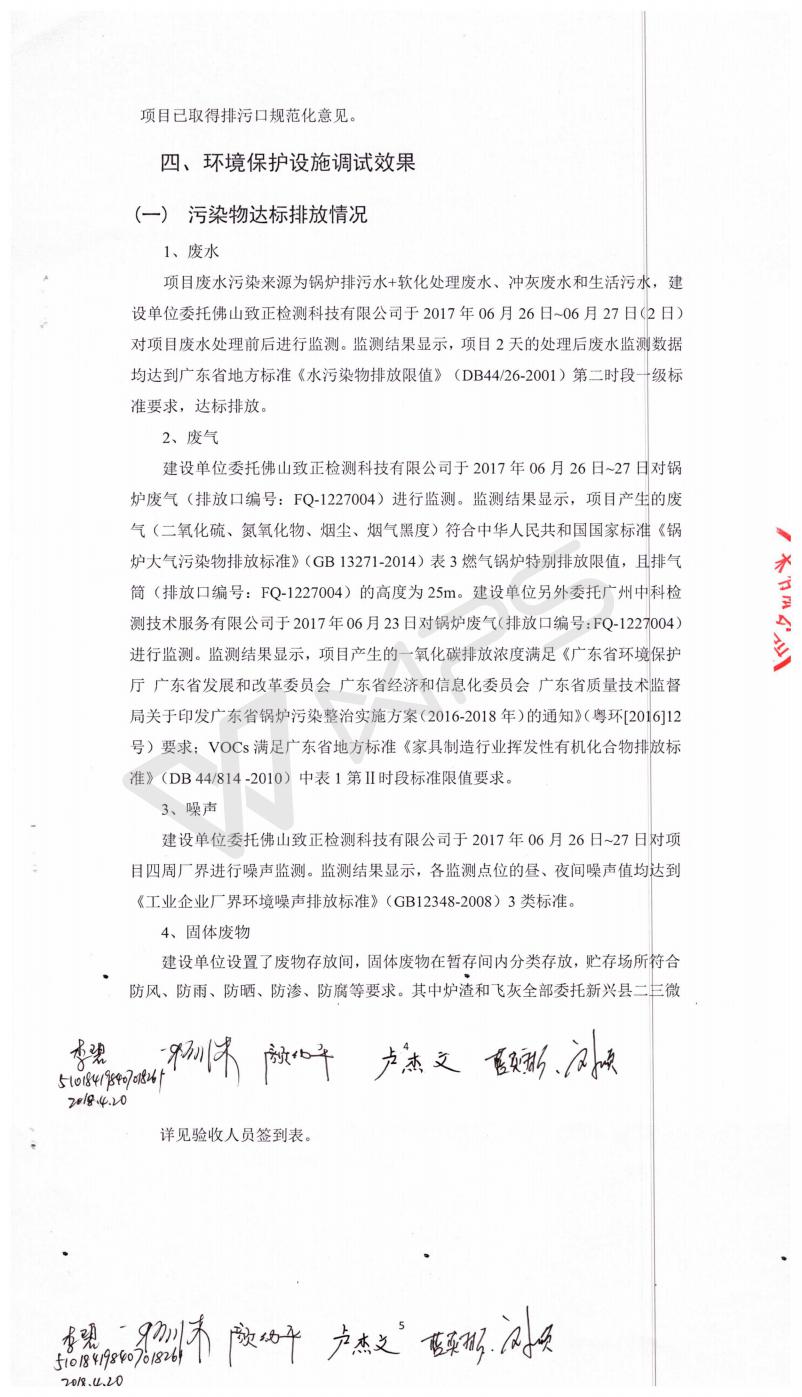 项目已取得排污口规范化意见。
四、环境保护设施调试效果
(一) 污染物达标排放情况
1、废水
项目废水污染来源为锅炉排污水+软化处理废水、冲灰废水和生活污水，建
设单位委托佛山致正检测科技有限公司于 2017 年 06 月 26 日~06 月 27 日（2 日）
对项目废水处理前后进行监测。监测结果显示，项目 2 天的处理后废水监测数据
均达到广东省地方标准《水污染物排放限值》（DB44/26-2001）第二时段一级标
准要求，达标排放。
2、废气
建设单位委托佛山致正检测科技有限公司于 2017 年 06 月 26 日~27 日对锅
炉废气（排放口编号：FQ-1227004）进行监测。监测结果显示，项目产生的废
气（二氧化硫、氮氧化物、烟尘、烟气黑度）符合中华人民共和国国家标准《锅
炉大气污染物排放标准》（GB 13271-2014）表 3 燃气锅炉特别排放限值，且排气
筒（排放口编号：FQ-1227004）的高度为 25m。建设单位另外委托广州中科检
测技术服务有限公司于 2017 年 06 月 23 日对锅炉废气（排放口编号：FQ-1227004）
进行监测。监测结果显示，项目产生的一氧化碳排放浓度满足《广东省环境保护
厅 广东省发展和改革委员会 广东省经济和信息化委员会 广东省质量技术监督
局关于印发广东省锅炉污染整治实施方案（2016-2018 年）的通知》（粤环[2016]12
号）要求；VOCs 满足广东省地方标准《家具制造行业挥发性有机化合物排放标
准》（DB 44/814 -2010）中表 1 第Ⅱ时段标准限值要求。
3、噪声
建设单位委托佛山致正检测科技有限公司于 2017 年 06 月 26 日~27 日对项
目四周厂界进行噪声监测。监测结果显示，各监测点位的昼、夜间噪声值均达到
《工业企业厂界环境噪声排放标准》（GB12348-2008）3 类标准。
4、固体废物
建设单位设置了废物存放间，固体废物在暂存间内分类存放，贮存场所符合
防风、防雨、防晒、防渗、防腐等要求。其中炉渣和飞灰全部委托新兴县二三微
4
李碧 卢杰文
510184198407018261
2018.4.20
详见验收人员签到表。
5
李碧 卢杰文
510184198407018261
2018.4.20
WPS